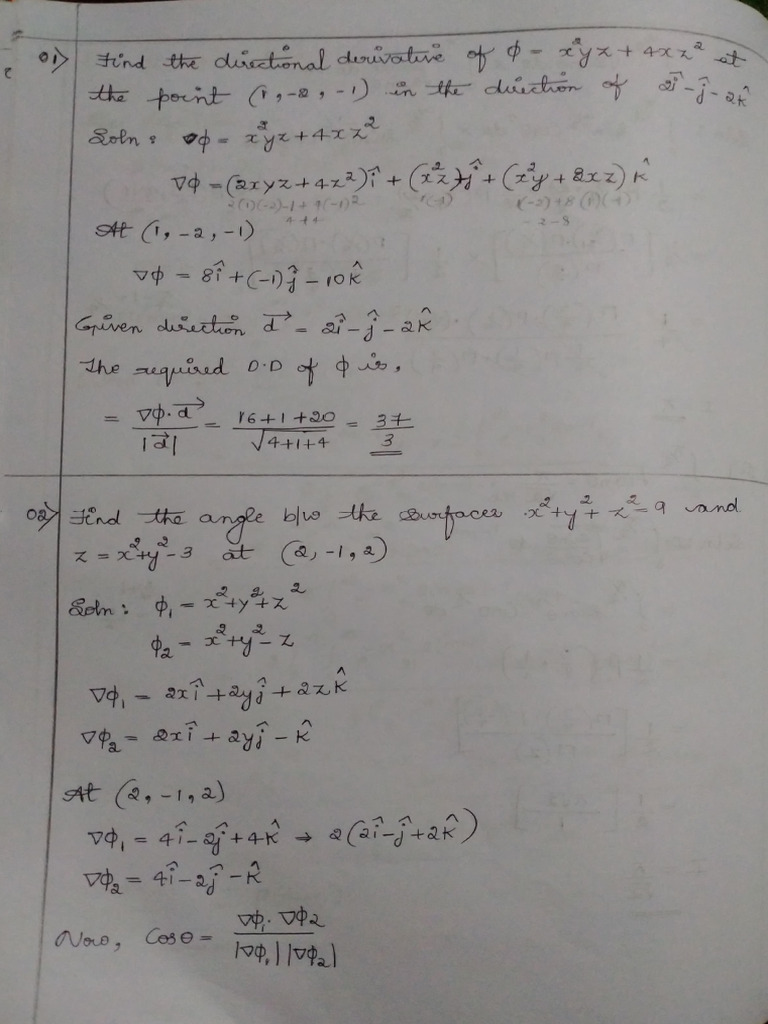 01) Find the directional derivative of φ = x²yz + 4xz² at
the point (1, -2, -1) in the direction of 2i⃗ - ĵ - 2k̂
Soln: ∇φ = x²yz + 4xz²
∇φ = (2xyz + 4z²)î + (x²z)ĵ + (x²y + 8xz)k̂
2(1)(-2)-1 + 4(-1)² 1(-1) 1(-2)+8(1)(-1)
4+4 -2-8
At (1, -2, -1)
∇φ = 8î + (-1)ĵ - 10k̂
Given direction d⃗ = 2i⃗ - ĵ - 2k̂
The required D.D of φ is,
= ∇φ·d⃗ / |d⃗| = 16+1+20 / √4+1+4 = 37 / 3
02) Find the angle b/w the surfaces x²+y²+z²=9 and
z = x²+y²-3 at (2, -1, 2)
Soln: φ₁ = x²+y²+z²
φ₂ = x²+y²-z
∇φ₁ = 2xî + 2yĵ + 2zk̂
∇φ₂ = 2xî + 2yĵ - k̂
At (2, -1, 2)
∇φ₁ = 4î - 2ĵ + 4k̂ → 2(2î - ĵ + 2k̂)
∇φ₂ = 4î - 2ĵ - k̂
Now, Cosθ = ∇φ₁·∇φ₂ / |∇φ₁| |∇φ₂|